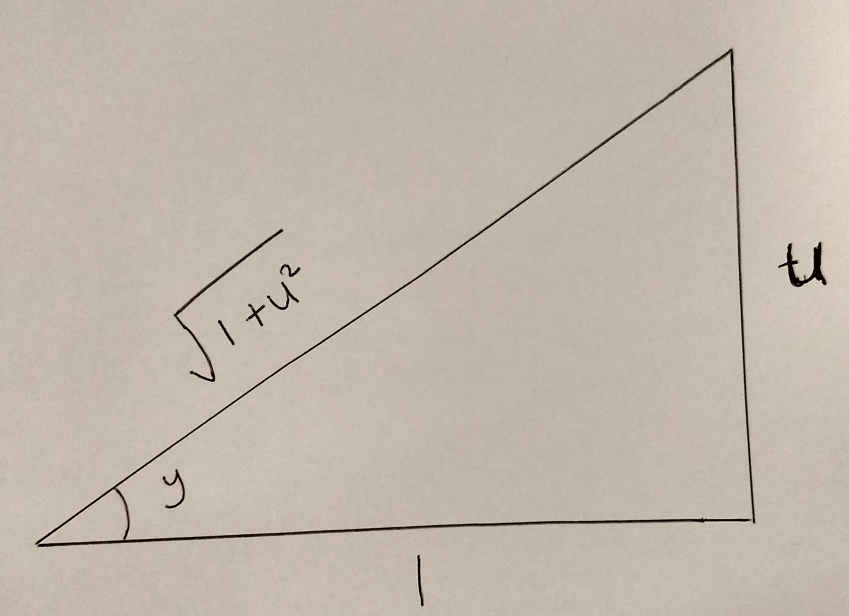 √1+u²
u
y
1